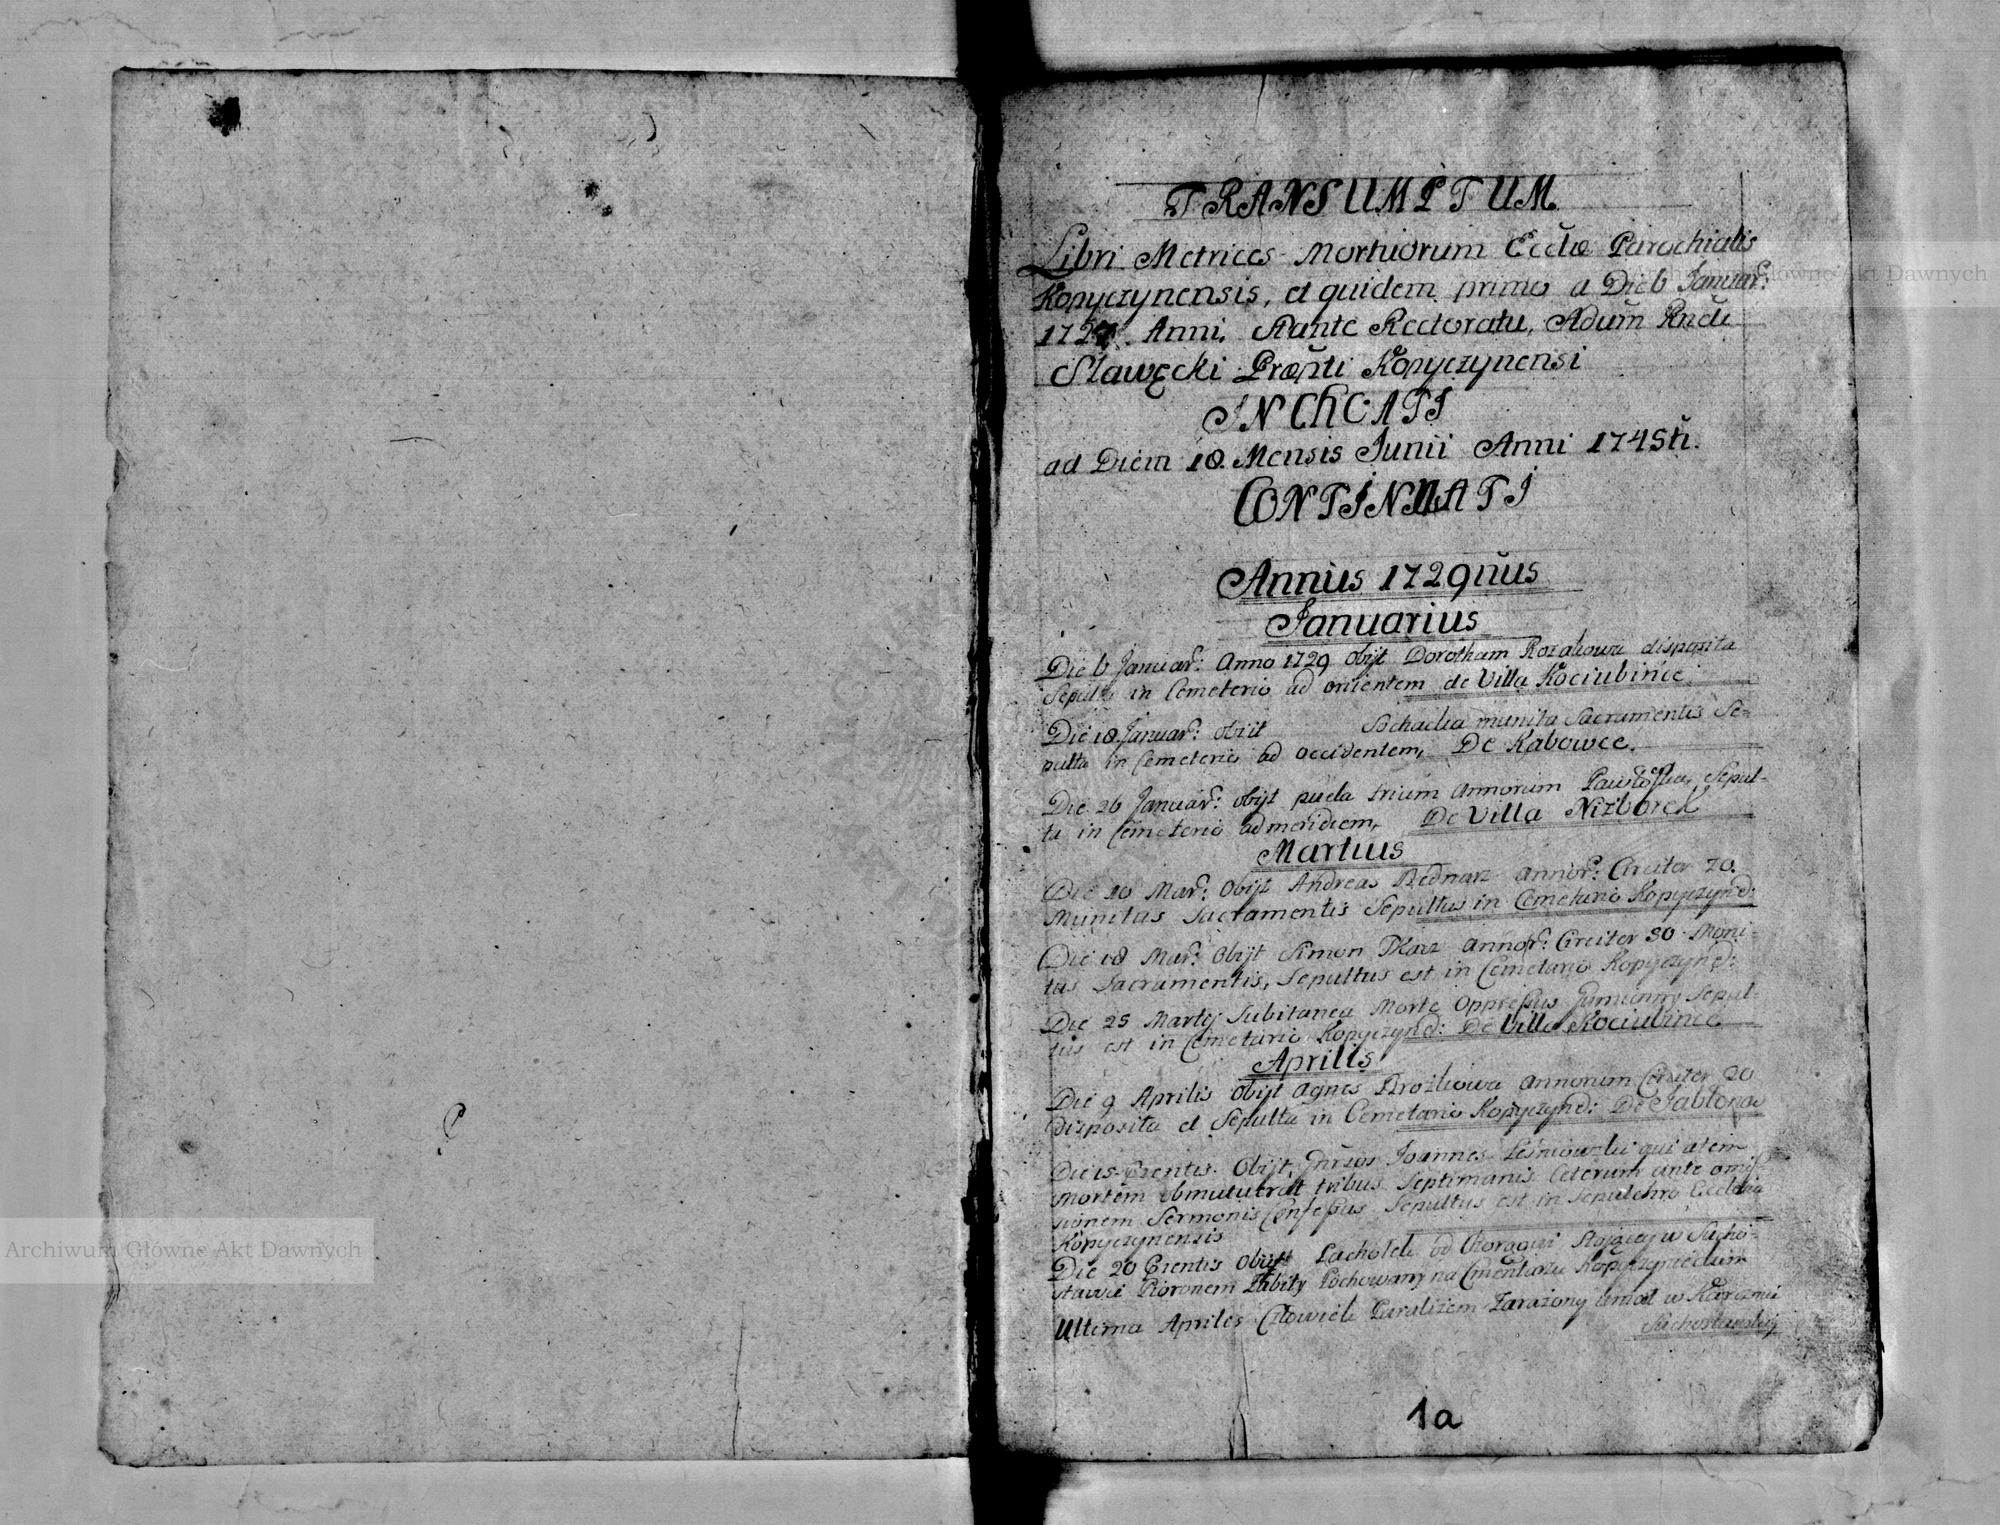 TRANSUMPTUM
Libri Metrices Mortuorum Eccłæ Parochialis
Kopyczynensis, et quidem primo a Die 6 Januar:
172 . Anni. Stante Rectoratu, Adum Rndi
Sławęcki Præpti Kopyczynensi
INChOATI
ad Diem 18. Mensis Junii Anni 1745ti.
CONTINUATI
Annus 1729nus
Januarius
Die 6 Januar: Anno 1729 obijt Dorotham disposita
Sepulta in Cemeterio ad orientem de Villa Kociubińce
Die 18 Januar: obiit munita Sacramentis Se=
pulta in Cemeterio ad occidentem, De Kabowce.
Die 26 Januar: obijt puela trium Annorum Sepul-
ta in Cemeterio ad meridiem, De Villa Niżborek
Martius
Die 10 Mar: Obijt Andreas Bednarz annor: Circiter 70.
Munitus Sacramentis Sepultus in Cemetario Kopyczynē:
Die 18 Mar: Obijt Simon Tkarz annor: Circiter 80 Moni-
tus Sacramentis, Sepultus est in Cemetario Kopyczynē:
Die 25 Martij Subitanea Morte Oppressus Gumienny Sepul-
tus est in Cemetario Kopyczynē: De Villa Kociubińce
Aprilis
Die 9 Aprilis Obijt Agnes Annorum Circiter 20
disposita et Sepulta in Cemetario Kopyczynē: De Jabłonow
Die 15 Erentis Obijt Joannes Leśniowski qui autem
Mortem obmutuerat tribus Septimanis Ceterum ante omis-
sionem Sermonis Confessus Sepultus est in Sepulchro Ecclesia
Kopyczynensis
Die 20 Erentis Obijt Pachołek od Chorągwi Stojącey w Sucho-
stawie Pioronem Zabity Pochowany na Cmentarzu
Ultima Aprilis Człowiek Paraliżem Zarażony Umarł w Karczmie
Suchostawskiy
1a
Archiwum Główne Akt Dawnych
Archiwum Główne Akt Dawnych